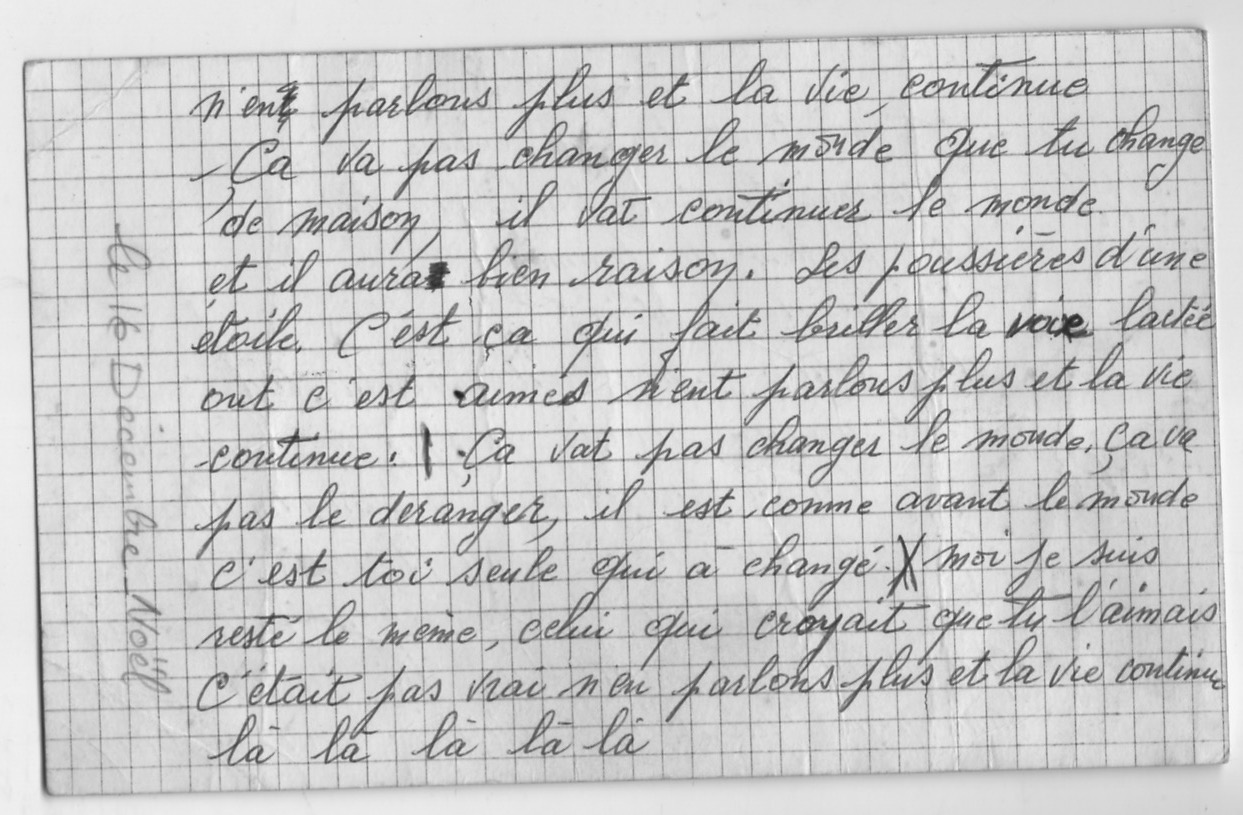 n'ent parlons plus et la vie continue
Ça va pas changer le monde que tu change
de maison, il vat continuer le monde
et il aura bien raison. Les poussières d'une
étoile. C'est ça qui fait briller la voie lactée
ont c'est aimés n'ent parlons plus et la vie
continue. Ça vat pas changer le monde, ça va
pas le deranger, il est comme avant le monde
c'est toi seule qui à changé. X moi je suis
resté le même, celui qui croyait que tu l'aimais
C'était pas vrai n'en parlons plus et la vie continue
là là là là là
le 16 Décembre Noël